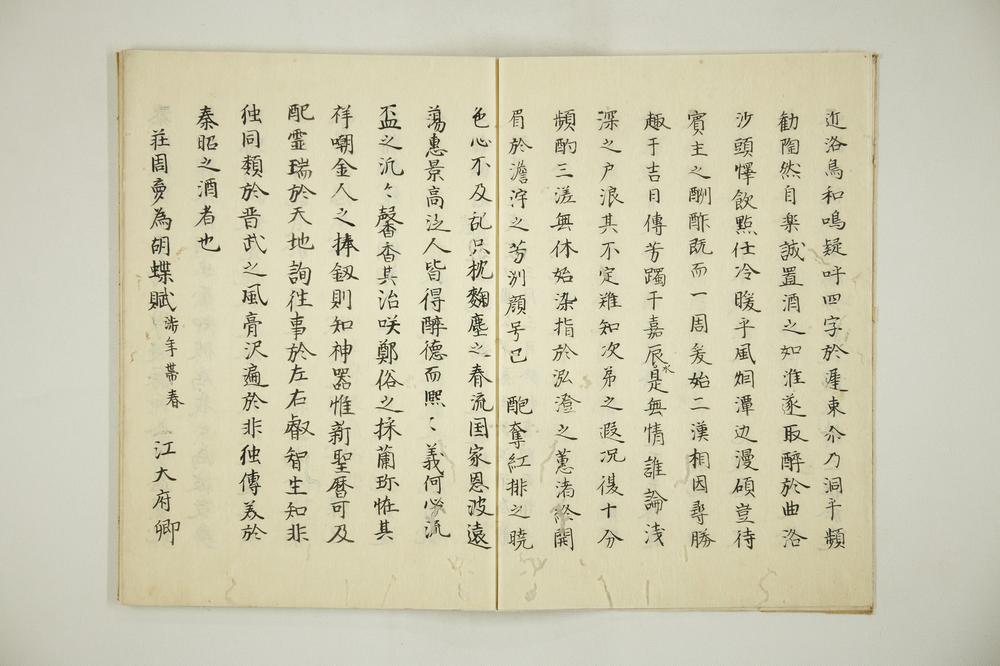 近洛鳥和鳴疑呼四字於遲東尒乃洞乎頻
勧陶然自楽誠置酒之如淮遂取酔於曲洛
沙頭懌飲㸃任冷暖乎風烟潭辺漫碩豈待
賓主之酬酢既而一周爰始二漢相因尋勝
趣于吉日傳芳躅于嘉辰是水無情誰論浅
深之戸浪其不定難知次第之遐况復十分
頻酌三遅無休始染指於泓澄之蕙渚終開
眉於澹泞之芳洲顔号已酡奪紅排之暁
色心不及乱只枕麹塵之春流国家恩波遠
蕩惠景高泛人皆得酔徳而熈〻義何必流
盃之汎〻馨香其治咲鄭俗之採蘭珎恠其
祥嘲金人之捧釼則知神器惟新聖暦可及
配霊瑞於天地詢徃事於左右叡智生知非
独同類於晋武之風膏沢遍於非独傳美於
秦昭之酒者也
荘周夢為胡蝶賦 渉年帯春 江大府卿